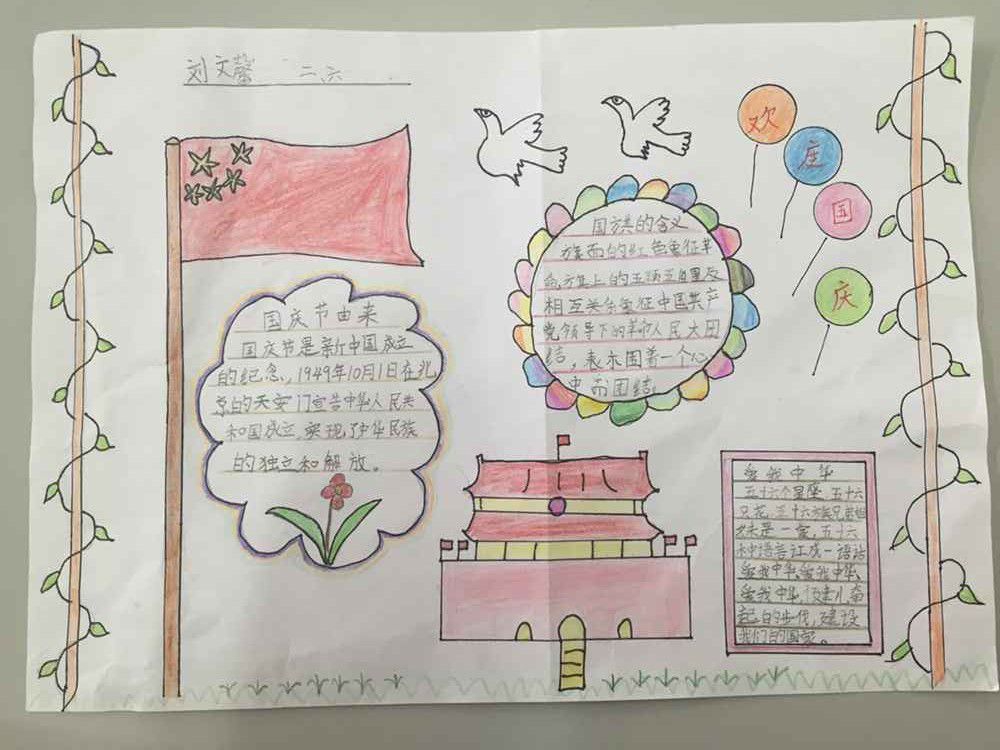 刘文馨 二六
欢
庄
国
庆
国旗的含义
旗面的红色象征革
命,旗上的五颗五角星及
相互关系象征中国共产
党领导下的革命人民大团
结，表示围着一个心
中而团结
国庆节由来
国庆节是新中国成立
的纪念,1949年10月1日在北
京的天安门宣告中华人民共
和国成立,实现了中华民族
的独立和解放。
爱我中华
五十六个星座,五十六
只花,五十六族兄弟姐
妹是一家,五十六
种语言汇成一语话
爱我中华,爱我中华,
爱我中华,健儿奋
起的步伐,建设
我们的国家。